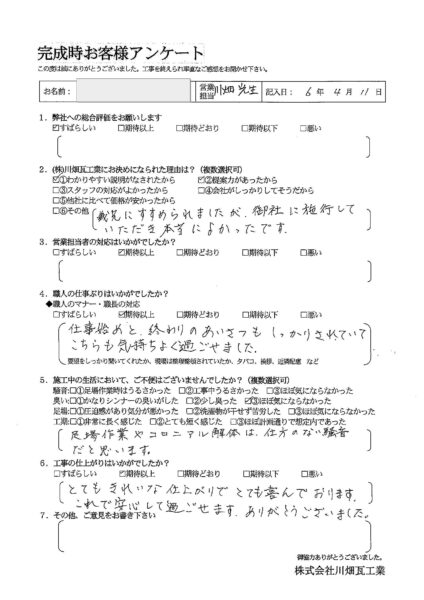 完成時お客様アンケート
この度は誠にありがとうございました。工事を終えられ率直なご感想をお聞かせ下さい。
お名前： 営業担当 川畑 記入日： 6 年 4 月 11 日
1．弊社への総合評価をお願いします
☑すばらしい □期待以上 □期待どおり □期待以下 □悪い
2．(株)川畑瓦工業にお決めになられた理由は？（複数選択可）
☑①わかりやすい説明がなされたから ☑②提案力があったから
□③スタッフの対応がよかったから □④会社がしっかりしてそうだから
□⑤他社に比べて価格が安かったから
□⑥その他 にすすめられましたが、御社に施行して
いただき本当によかったです。
3．営業担当者の対応はいかがでしたか？
□すばらしい ☑期待以上 □期待どおり □期待以下 □悪い
4．職人の仕事ぶりはいかがでしたか？
◆職人のマナー・職長の対応
□すばらしい ☑期待以上 □期待どおり □期待以下 □悪い
仕事始めと、終わりのあいさつもしっかりされていて
こちらも気持ちよく過ごせました。
要望をしっかり聞いてくれたか、現場は整理整頓されていたか、タバコ、挨拶、近隣配慮 など
5．施工中の生活において、ご不便はございませんでしたか？（複数選択可）
騒音:□①足場作業時はうるさかった □②工事中うるさかった □③ほぼ気にならなかった
臭い:□①かなりシンナーの臭いがした □②少し臭った ☑③ほぼ気にならなかった
足場:□①圧迫感があり気分が悪かった □②洗濯物が干せず苦労した □③ほぼ気にならなかった
工期:□①非常に長く感じた □②とても短く感じた □③ほぼ計画通りで想定内であった
足場作業やコロニアル解体は、仕方のない騒音
だと思います。
6．工事の仕上がりはいかがでしたか？
□すばらしい ☑期待以上 □期待どおり □期待以下 □悪い
とてもきれいな仕上がりでとても喜んでおります。
これで安心して過ごせます。ありがとうございました。
7．その他、ご意見をお書き下さい
御協力ありがとうございました。
株式会社川畑瓦工業